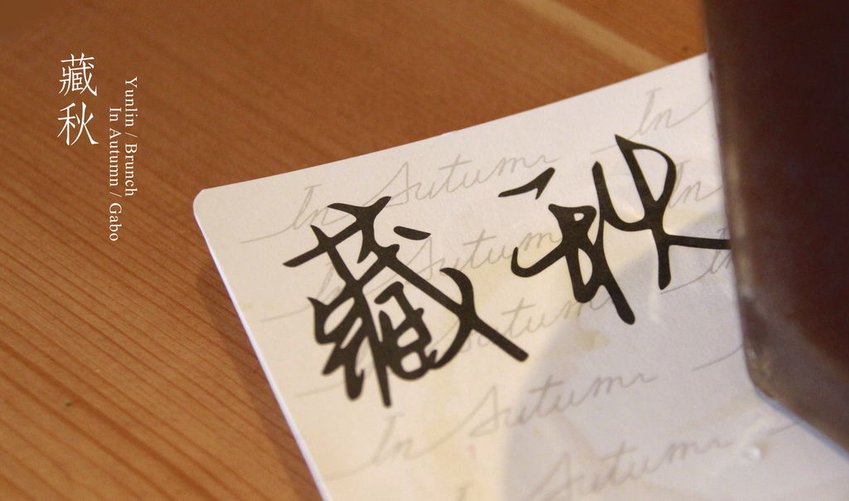 藏秋
Yunlin / Brunch
In Autumn / Gabo
藏秋
In Autumn
In
In Autumn
In
In Autumn
In Autumn
In Autumn